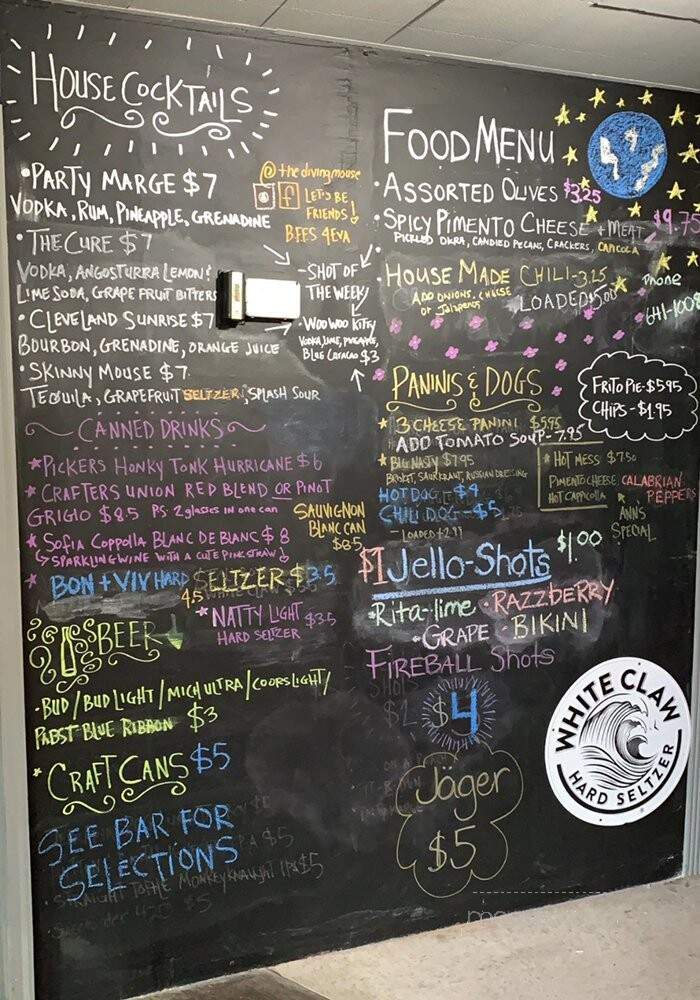 HOUSE COCKTAILS
•PARTY MARGE $7
VODKA, RUM, PINEAPPLE, GRENADINE
•THE CURE $7
VODKA, ANGOSTURRA LEMON &
LIME SODA, GRAPE FRUIT BITTERS
•CLEVELAND SUNRISE $7
BOURBON, GRENADINE, ORANGE JUICE
•SKINNY MOUSE $7
TEQUILA, GRAPEFRUIT SELTZER, SPLASH SOUR
@thedivingmouse
f LET'S BE
FRIENDS!
BFFS 4EVA
-SHOT OF
THE WEEK
-WOO WOO KITTY
VODKA, LIME, PINEAPPLE,
BLUE CURACAO $3
~CANNED DRINKS~
*PICKERS HONKY TONK HURRICANE $6
*CRAFTERS UNION RED BLEND OR PINOT
GRIGIO $8.5 PS: 2 glasses in one can
SAUVIGNON
BLANC CAN
$8.5
*SOFIA COPPOLLA BLANC DE BLANC $8
SPARKLING WINE WITH A CUTE PINK STRAW!
* BON + VIV HARD SELTZER $3.5
4.5
*NATTY LIGHT $3.5
HARD SELTZER
BEER
•BUD/BUD LIGHT/MICH ULTRA/COORS LIGHT/
PABST BLUE RIBBON $3
*CRAFT CANS $5
SEE BAR FOR
SELECTIONS
FOOD MENU
•ASSORTED OLIVES $3.25
•SPICY PIMENTO CHEESE + MEAT $9.75
PICKLED OKRA, CANDIED PECANS, CRACKERS, CAPICOLA
HOUSE MADE CHILI-3.25
ADD ONIONS, CHEESE
or Jalapenos
LOADED $5.00
Phone
641-1008
PANINIS & DOGS
FRITO PIE-$5.95
CHIPS-$1.95
*3 CHEESE PANINI $5.95
ADD TOMATO SOUP- 7.95
*BIG NASTY $7.95
BRISKET, SAURKRAUT, RUSSIAN DRESSING
HOT DOG $4
CHILI DOG-$5
-LOADED +2.99
*HOT MESS $7.50
PIMENTO CHEESE CALABRIAN
HOT CAPPICOLLA PEPPERS
ANN'S
SPECIAL
$1 Jello-Shots $1.00
•Rita-lime •RAZZBERRY
•GRAPE •BIKINI
FIREBALL Shots
$4
Jäger
$5
WHITE CLAW
HARD SELTZER